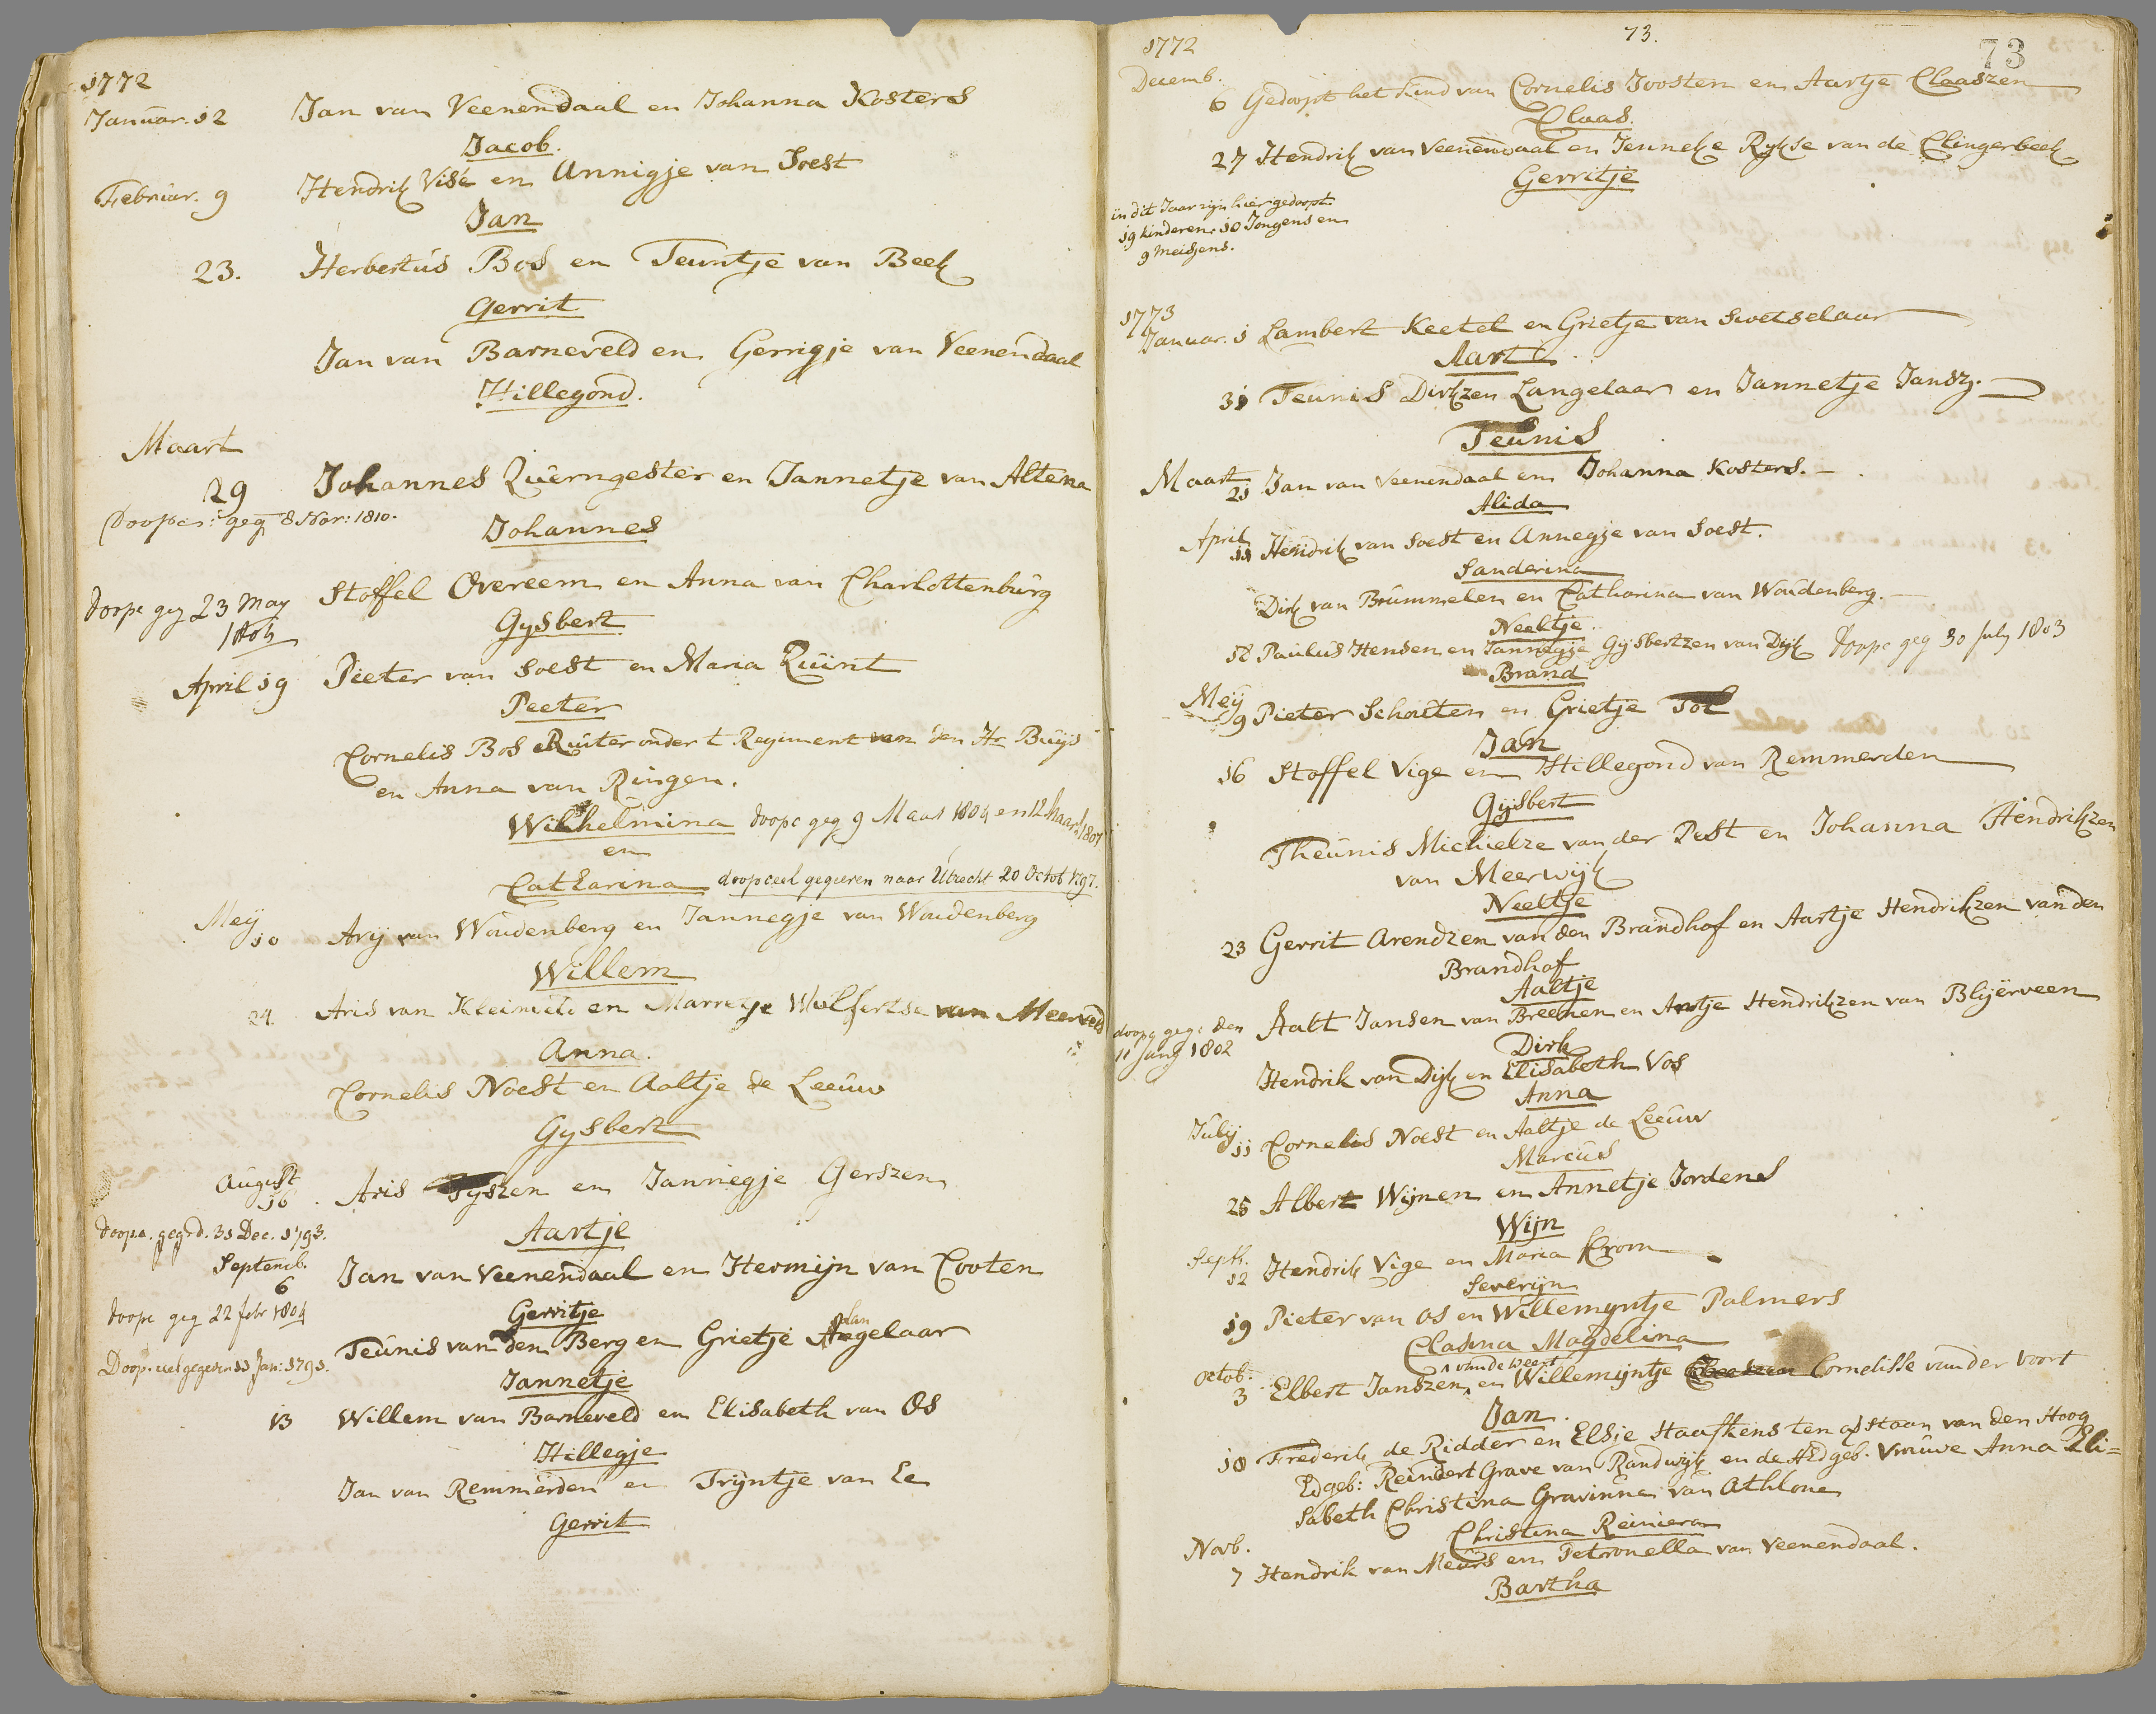 1772
Januar. 12 Jan van Veenendaal en Johanna Kosters
Jacob.
Februar. 9 Hendrik Visé en Annigje van Soest
Jan
23. Herbertus Bos en Teuntje van Beek
Gerrit
Jan van Barneveld en Gerrigje van Veenendaal
Hillegond.
Maart
29 Johannes Querngester en Jannetje van Altena
Doopc: geg 8 Nov: 1810.
Johannes
Stoffel Overeem en Anna van Charlottenburg
doopc geg 23 May
Gysbert
April 19 Pieter van Soest en Maria Quint
Peeter
Cornelis Bos Ruiter onder t Regiment van den Hr Buijs
en Anna van Ringen.
Wilhelmina doopc geg 9 Maart 1804 en 12 Maart 1807
en
Catharina doopceel gegeven naar Utrecht 20 Octob 1797.
Meÿ
10 Arij van Woudenberg en Jannegje van Woudenberg
Willem
24. Aris van en Marretje Wulfertse van Meerveld
Anna.
Cornelis Noest en Aaltje de Leeuw
Gysbert
August
16. Aris Tyszen en Jannegje Gerszen
doopc. geg. d. 31 Dec. 1793.
Aartje
Septemb.
6 Jan van Veenendaal en Hermijn van Cooten
doopc geg 22 febr 1804
Gerritje
lan
Teunis van den Berg en Grietje Angelaar
Doop.ceel gegeven 11 Jan: 1791.
Jannetje
13 Willem van Barneveld en Elisabeth van Os
Hillegje
Jan van Remmerden en Trijntje van Ee
Gerrit
73.
73
1772
Decemb.
6 Gedoopt het kind van Cornelis Joosten en Aartje Claaszen
Claas.
27 Hendrik van Veenendaal en Jenneke Rykse van de Clingerbeek
Gerritje
in dit Jaar zijn hier gedoopt
19 kinderen. 10 Jongens en
9 meisjens.
1773
Januar. 1 Lambert Keetel en Grietje van Swetselaar
Aart
31 Teunis Dirkzen Langelaar en Jannetje Jansz.
Teunis
Maart
21 Jan van Veenendaal en Johanna Kosters.
Alida
April
11 Hendrik van Soest en Annegje van Soest.
Sanderina
Dirk van Brummelen en Catharina van Woudenberg.
Neeltje
18 Paulus Hensen en Jannigje Gijsbertzen van Dijk doopc geg 30 July 1803
Brand
Meÿ
9 Pieter Schouten en Grietje Tol
Jan
16 Stoffel Vige en Hillegond van Remmerden
Gijsbert
Theunis Michielze van der Pest en Johanna Hendrikzen
van Meerwijk
Neeltje
23 Gerrit Arendzen van den Brandhof en Aartje Hendrikzen van den
Brandhof
Aaltje
doopc geg: den
11 1802
Aalt Jansen van Breenen en Antje Hendrikzen van Blijërveen
Dirk
Hendrik van Dijk en Elisabeth Vos
Anna
Julij
11 Cornelis Noest en Aaltje de Leeuw
Marcus
25 Albert Wijnen en Annetje Jordens
Wijn
Septb.
12 Hendrik Vige en Maria Krom
Severijn
19 Pieter van Os en Willemyntje Palmers
Clasina Magdelina
van de Weert
Octob.
3 Elbert Janszen en Willemijntje Cornelisse van der Voort
Jan.
10 Frederik de Ridder en Elsje Haafkens ten afstaan van den Hoog
Edgeb: Reindert Grave van Randwijk en de HEdgeb. Vrouwe Anna Eli=
sabeth Christina Gravinne van Athlone
Christina Reiniera
Novb.
7 Hendrik van Meurs en Petronella van Veenendaal.
Bartha